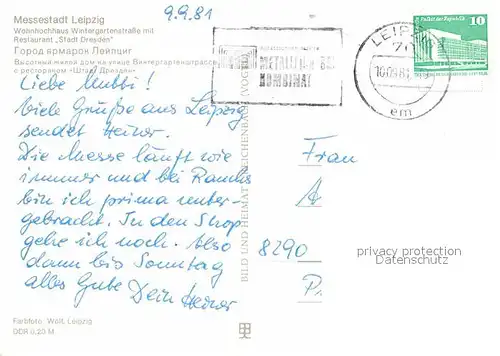 Messestadt Leipzig
Wohnhochhaus Wintergartenstraße mit
Restaurant „Stadt Dresden“
Город ярмарок Лейпциг
Высотный жилой дом на улице Винтергартенштрассе
с рестораном «Штадт Дрезден»
9.9.81
Liebe Mutti!
Viele Grüße aus Leipzig
sendet Heiner.
Die Messe läuft wie
immer und bei Rauchs
bin ich prima unter-
gebracht. In den Shop
gehe ich noch. Also
dann bis Sonntag
alles Gute Dein Heiner
Farbfoto: Woll, Leipzig
DDR 0,20 M
BILD UND HEIMAT REICHENBACH (VOGTL)
METALLURGIE
KOMBINAT
LEIPZIG
70
em
10
Frau
A
8290
P.
privacy protection
Datenschutz